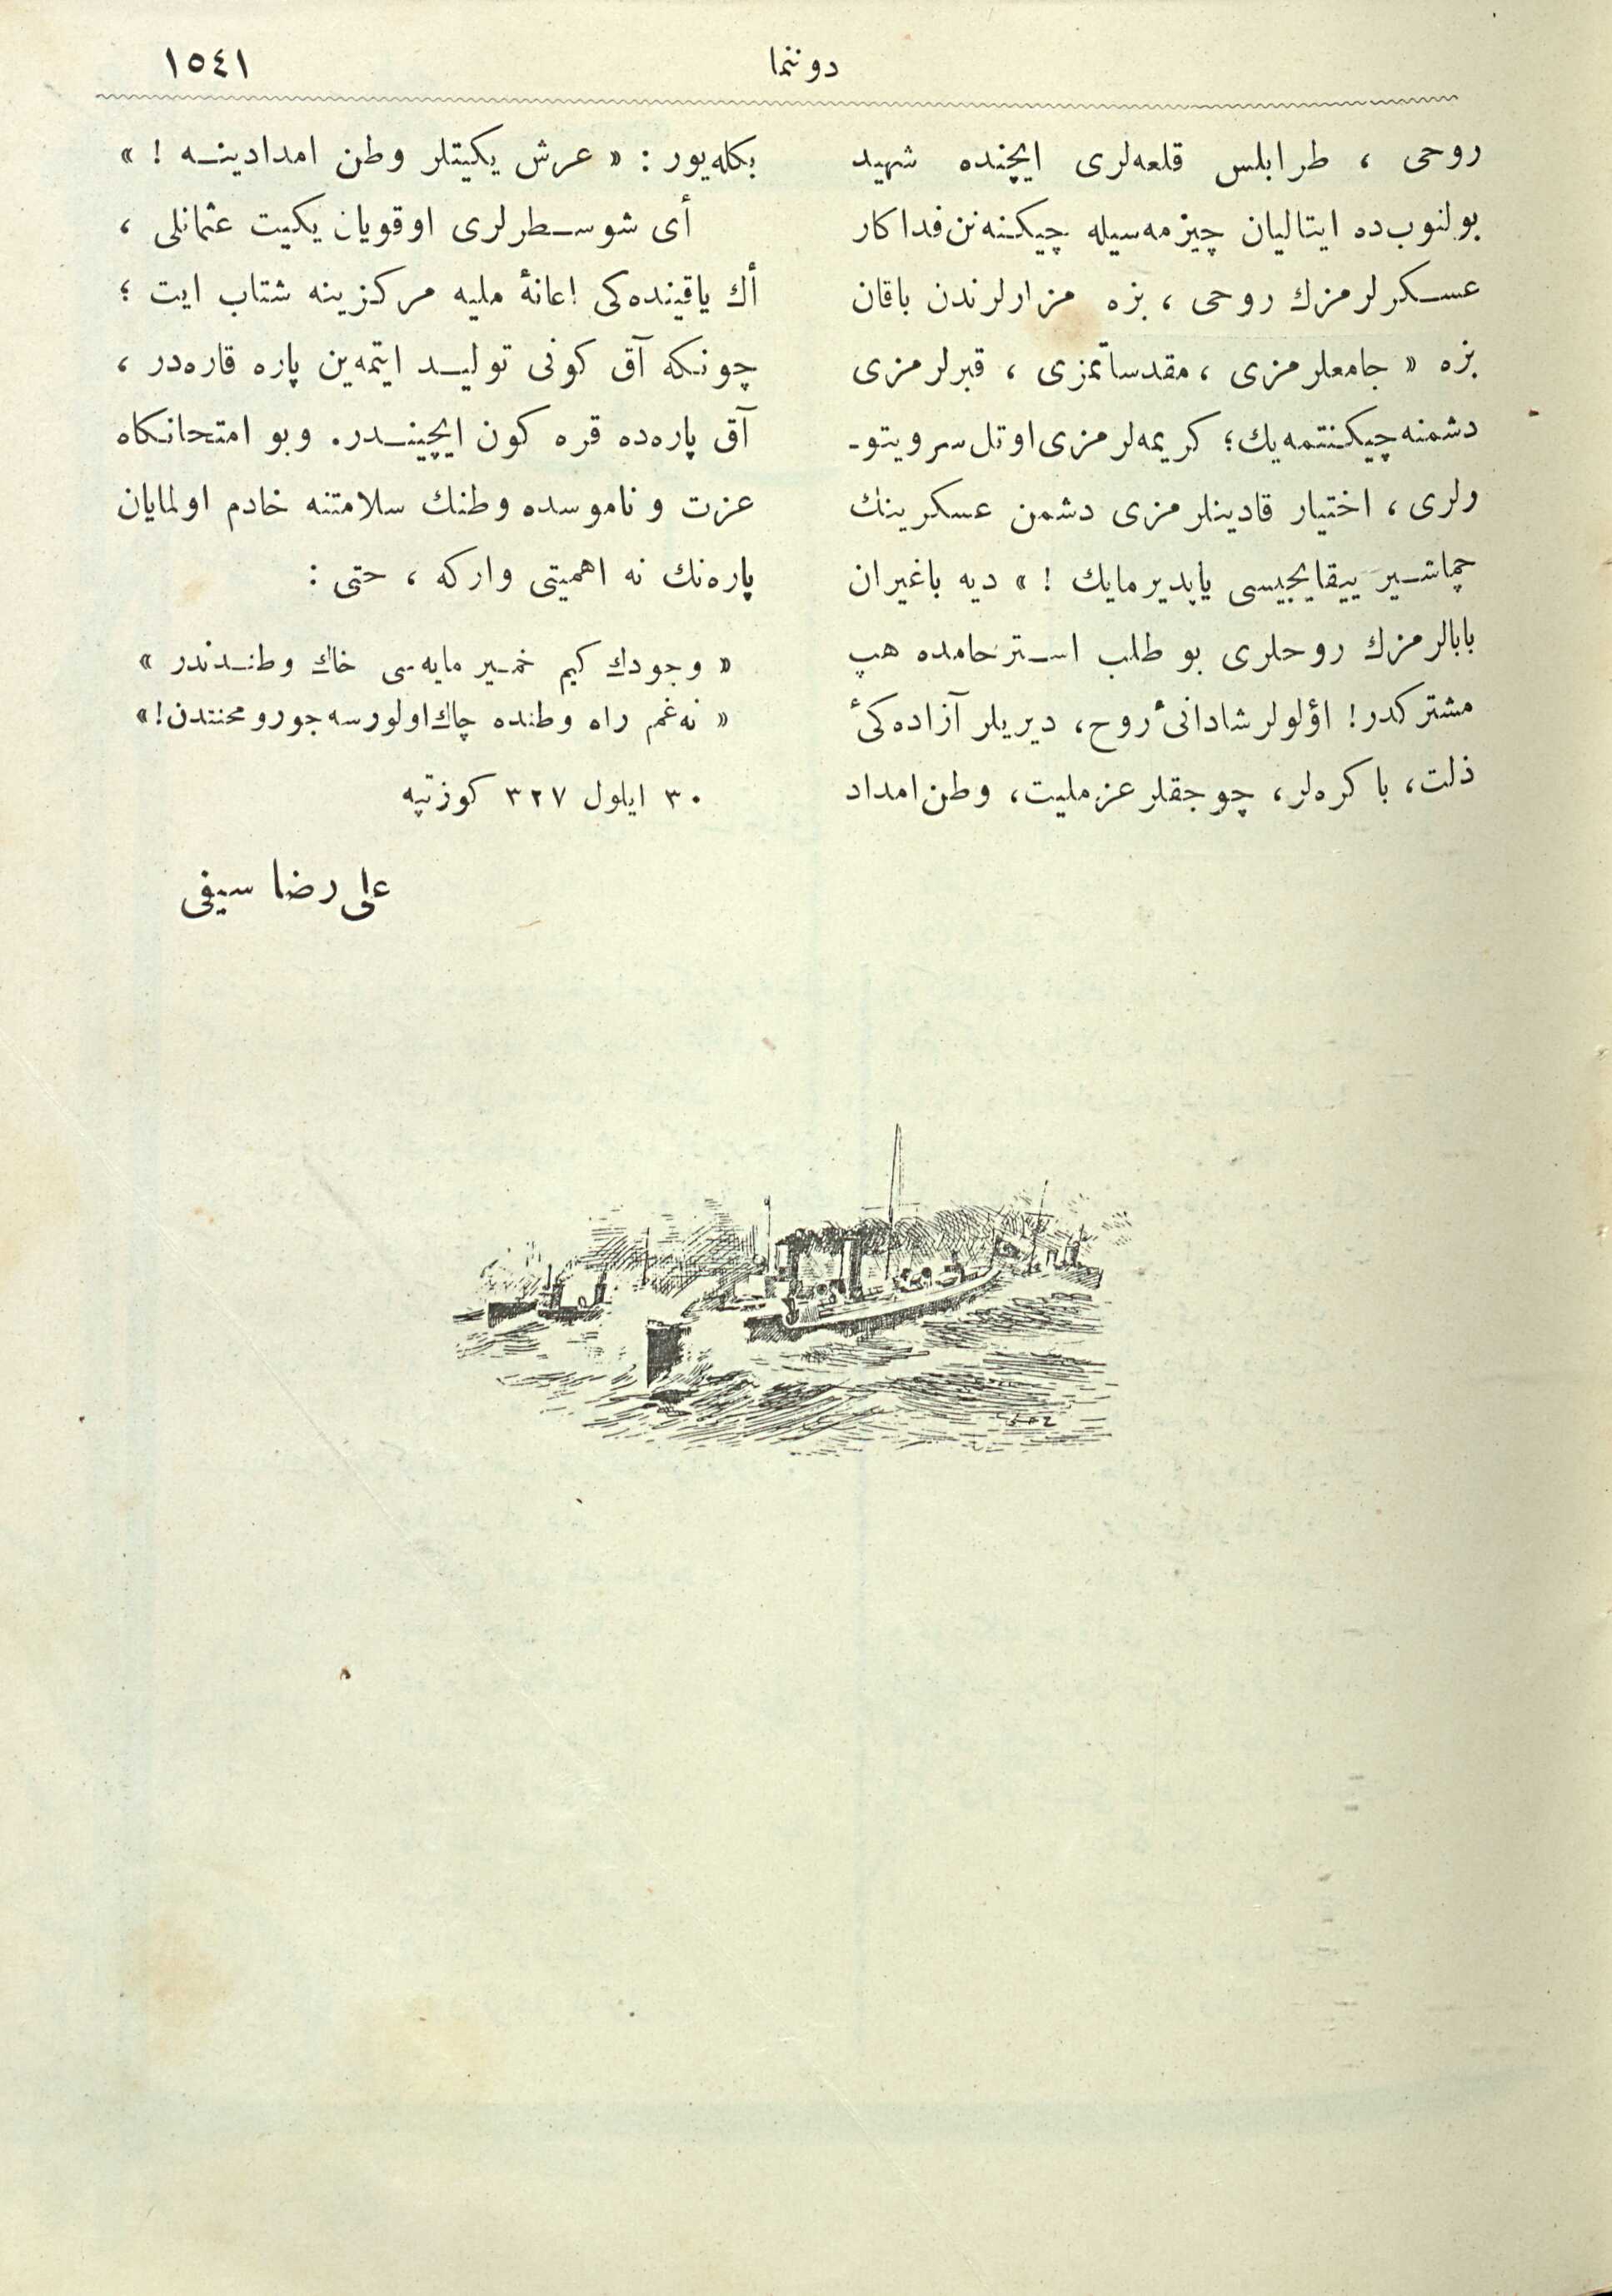 دوننما
١٥٤١
روحی ، طرابلس قلعه‌لری ایچنده شهید
بولنوب‌ده ایتالیان چیزمه‌سیله چیکنه‌نن فداکار
عسکرلرمزك روحی ، بزه مزارلرندن باقان
بزه « جامعلرمزی ، مقدساتمزی ، قبرلرمزی
دشمنه چیکنتمه‌یك؛ کریمه‌لرمزی اوتل سرویتو-
رلری ، اختیار قادینلرمزی دشمن عسکرینك
چماشیر ییقایجیسی یاپدیرمایك ! » دیه باغیران
بابالرمزك روحلری بو طلب استرحامده هپ
مشترکدر! اؤلولر شادانیٔ روح، دیریلر آزاده‌کیٔ
ذلت، باکره‌لر، چوجقلر عزملیت، وطن امداد
بکله‌یور : « عرش یکیتلر وطن امدادینه ! »
أی شو سطرلری اوقویان یکیت عثمانلی ،
أك یاقینده‌کی اعانهٔ ملیه مرکزینه شتاب ایت ؛
چونکه آق کونی تولید ایتمه‌ین پاره قاره‌در ،
آق پاره‌ده قره کون ایچیندر. وبو امتحانکاه
عزت و ناموسده وطنك سلامتنه خادم اولمایان
پاره‌نك نه اهمیتی وارکه ، حتی :
« وجودك کیم خمیر مایه‌سی خاك وطندندر »
« نه غم راه وطنده چاك اولورسه جور و محنتدن! »
٣٠ ایلول ٣٢٧ کوزتپه
علی رضا سیفی